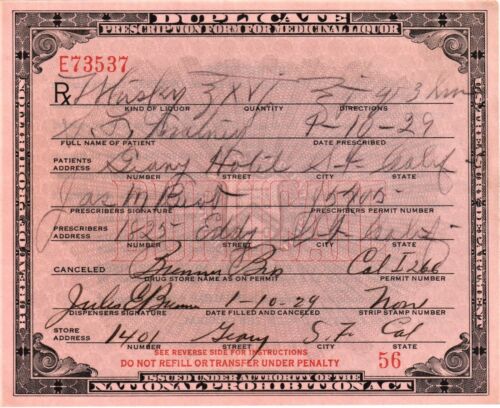 DUPLICATE
PRESCRIPTION FORM FOR MEDICINAL LIQUOR
E73537
Rx Whisky ℥XVI ℥i q 3 hrs
KIND OF LIQUOR QUANTITY DIRECTIONS
1-10-29
FULL NAME OF PATIENT DATE PRESCRIBED
PATIENTS ADDRESS Geary S. F. Calif
NUMBER STREET CITY STATE
Jas M 15405
PRESCRIBERS SIGNATURE PRESCRIBERS PERMIT NUMBER
PRESCRIBERS ADDRESS 1825 Eddy S. F. Calif
NUMBER STREET CITY STATE
CANCELED Brunner Bros Cal I 260
DRUG STORE NAME AS ON PERMIT PERMIT NUMBER
Jules Brunner 1-10-29 None
DISPENSERS SIGNATURE DATE FILLED AND CANCELED STRIP STAMP NUMBER
STORE ADDRESS 1401 Geary S. F. Cal
NUMBER STREET CITY STATE
SEE REVERSE SIDE FOR INSTRUCTIONS
DO NOT REFILL OR TRANSFER UNDER PENALTY 56
ISSUED UNDER AUTHORITY OF THE
NATIONAL PROHIBITION ACT
BUREAU OF PROHIBITION
TREASURY DEPARTMENT